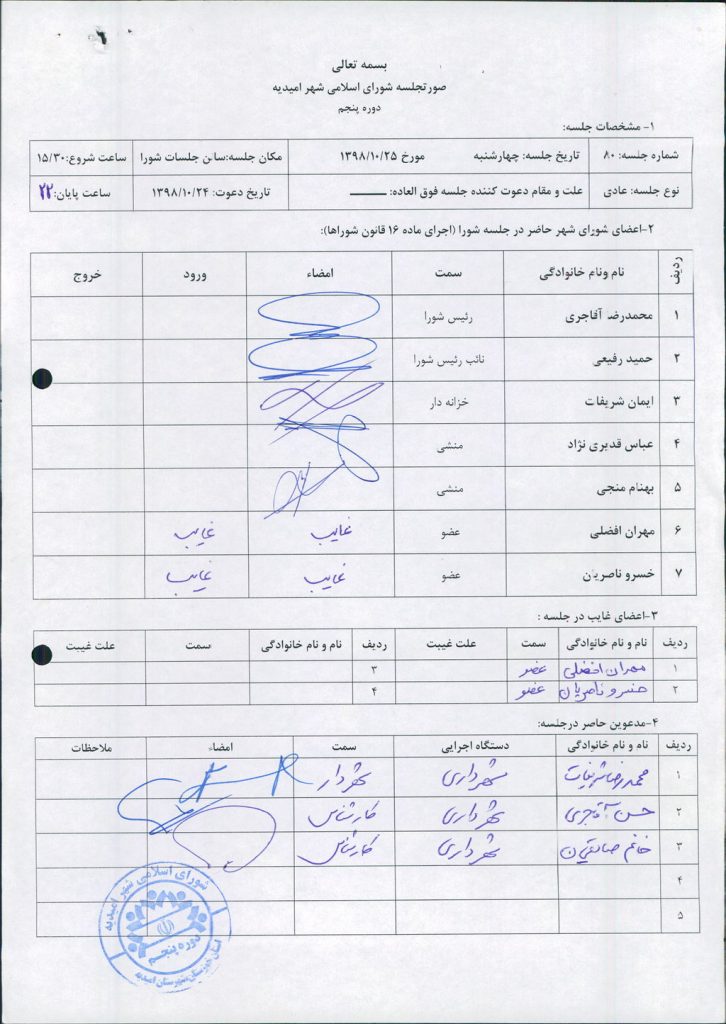 بسمه تعالی
صورتجلسه شورای اسلامی شهر امیدیه
دوره پنجم
۱- مشخصات جلسه:
شماره جلسه: ۸۰ تاریخ جلسه: چهارشنبه مورخ ۱۳۹۸/۱۰/۲۵ مکان جلسه:سالن جلسات شورا ساعت شروع:۱۵/۳۰
نوع جلسه: عادی علت و مقام دعوت کننده جلسه فوق العاده: ـــــــ تاریخ دعوت: ۱۳۹۸/۱۰/۲۴ ساعت پایان: ۲۲
۲-اعضای شورای شهر حاضر در جلسه شورا (اجرای ماده ۱۶ قانون شوراها):
ردیف نام ونام خانوادگی سمت امضاء ورود خروج
۱ محمدرضا آقاجری رئیس شورا
۲ حمید رفیعی نائب رئیس شورا
۳ ایمان شریفات خزانه دار
۴ عباس قدیری نژاد منشی
۵ بهنام منجی منشی
۶ مهران افضلی عضو غایب غایب
۷ خسرو ناصریان عضو غایب غایب
۳-اعضای غایب در جلسه :
ردیف نام و نام خانوادگی سمت علت غیبت ردیف نام و نام خانوادگی سمت علت غیبت
۱ مهران افضلی عضو ۳
۲ خسرو ناصریان عضو ۴
۴-مدعوین حاضر درجلسه:
ردیف نام و نام خانوادگی دستگاه اجرایی سمت امضاء ملاحظات
۱ محمدرضا شریفات شهرداری شهردار
۲ حسن آقاجری شهرداری کارشناس
۳ خانم شهرداری کارشناس
۴
۵
شورای اسلامی شهر امیدیه
دوره پنجم
استان خوزستان شهرستان امیدیه